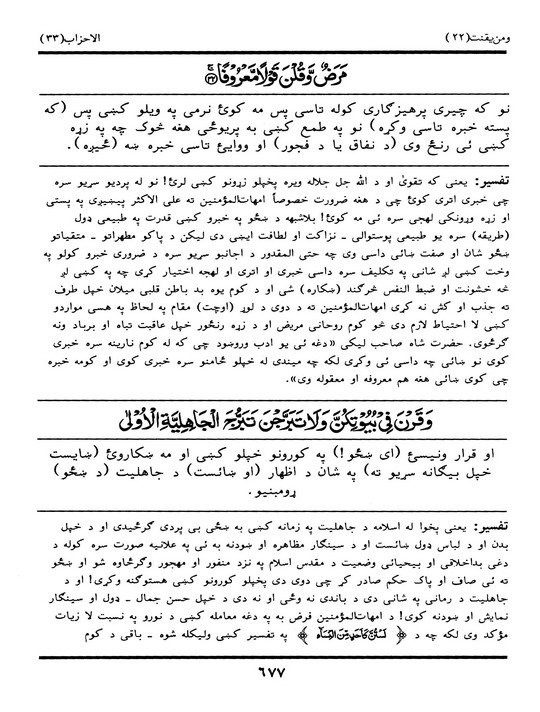 ومن يقنت(٢٢) الاحزاب(٣٣)
مَرَضٌ وَّقُلْنَ قَوْلًا مَّعْرُوْفًا ﴿٣٢﴾
نو که چیری پرهیزګاری کوله تاسی پس مه کوئ نرمی په ویلو کښی پس (که
پسته خبره تاسی وکړه) نو په طمع کښی به پریوځی هغه څوک چه په زړه
کښی ئی رنځ وی (د نفاق یا د فجور) او ووایئ تاسی خبره ښه (څیړه).
تفسیر: یعنی که تقویٰ او د الله جل جلاله ویره پخپلو زړونو کښی لرئ! نو له پردیو سړیو سره
چی خبری اتری کوئ چی د هغه ضرورت خصوصاً امهات‌المؤمنین ته علی الاکثر پیښیږی په پستی
او زړه وړونکی لهجی سره ئی مه کوئ! بلاشبهه د ښځو په خبرو کښی قدرت په طبیعی ډول
(طریقه) سره یو طبیعی پوستوالی ـ نزاکت او لطافت ایښی دی لیکن د پاکو مطهراتو ـ متقیاتو
ښځو شان او صفت ښائی داسی وی چه حتی المقدور د اجانبو سړیو سره د ضروری خبرو کولو په
وخت کښی لږ شانی په تکلیف سره داسی خبری او اتری او لهجه اختیار کړی چه په کښی لږ
څه خشونت او ضبط النفس څرګند (ښکاره) شی او د کوم یوه بد باطن قلبی میلان خپل طرف
ته جذب او کش نه کړی امهات‌المؤمنین ته د دوی د لوړ (اوچت) مقام په لحاظ په هسی مواردو
کښی لا احتیاط لازم دی څو کوم روحانی مریض او د زړه رنځور خپل عاقبت تباه او برباد ونه
ګرځوی. حضرت شاه صاحب لیکی «دغه ئی یو ادب وروښود چی که له کوم نارینه سره خبری
کوی نو ښائی چه داسی ئی وکړی لکه چه میندی له خپلو ځامنو سره خبری کوی او کومه خبره
چی کوی ښائی هغه هم معروفه او معقوله وی».
وَقَرْنَ فِیْ بُیُوْتِکُنَّ وَلَا تَبَرَّجْنَ تَبَرُّجَ الْجَاهِلِیَّةِ الْاُوْلٰی
او قرار ونیسئ (ای ښځو!) په کورونو خپلو کښی او مه ښکاروئ (ښایست
خپل بیګانه سړیو ته) په شان د اظهار (او ښائست) د جاهلیت (د ښځو)
ړومبنیو.
تفسیر: یعنی پخوا له اسلامه د جاهلیت په زمانه کښی به ښځی بی پردی ګرځیدی او د خپل
بدن او د لباس ډول ښائست او د سینګار مظاهره او ښودنه به ئی په علانیه صورت سره کوله د
دغی بداخلاقی او بیحیائی وضعیت د مقدس اسلام په نزد منفور او مهجور وګرځاوه شو او ښځو
ته ئی صاف او پاک حکم صادر کړ چی دوی دی پخپلو کورونو کښی هستوګنه وکړی! او د
جاهلیت د زمانی په شانی دی د باندی نه وځی او نه دی د خپل حسن جمال ـ ډول او سینګار
نمایش او ښودنه کوی! د امهات‌المؤمنین فرض په په دغه معامله کښی د نورو په نسبت لا زیات
مؤکد وی لکه چه د ﴿ لَسْتُنَّ کَاَحَدٍ مِّنَ النِّسَآءِ ﴾ په تفسیر کښی ولیکله شوه ـ باقی د کوم
٦٧٧